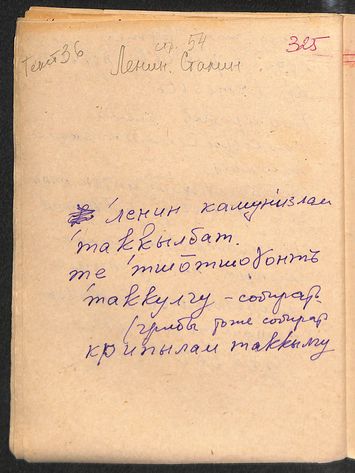 стр. 54
325
Текст 36
Ленин. Сталин
'ленин камунизлам
'таккылбат.
те 'тшо̄тшоɣонтъ
'таккулгу – собирать
(грибы тоже собират
крипылам таккылгу